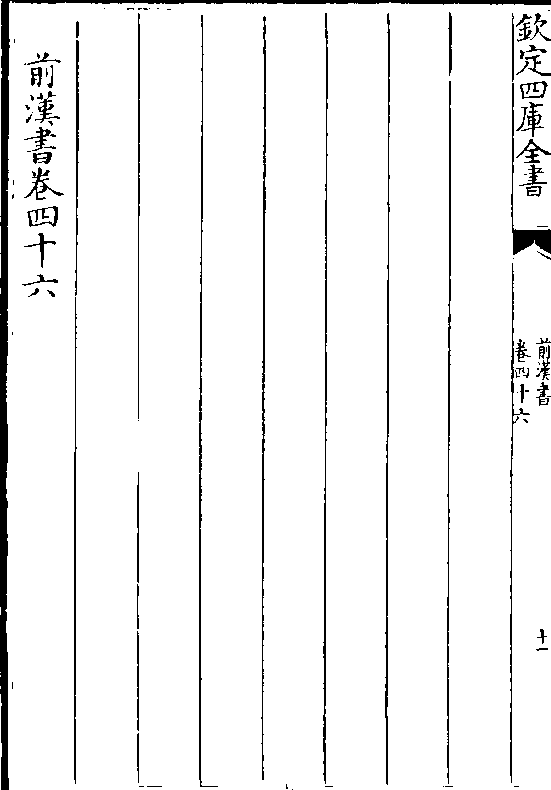 欽定四庫全書
前漢書
卷四十六
十一
前漢書卷四十六